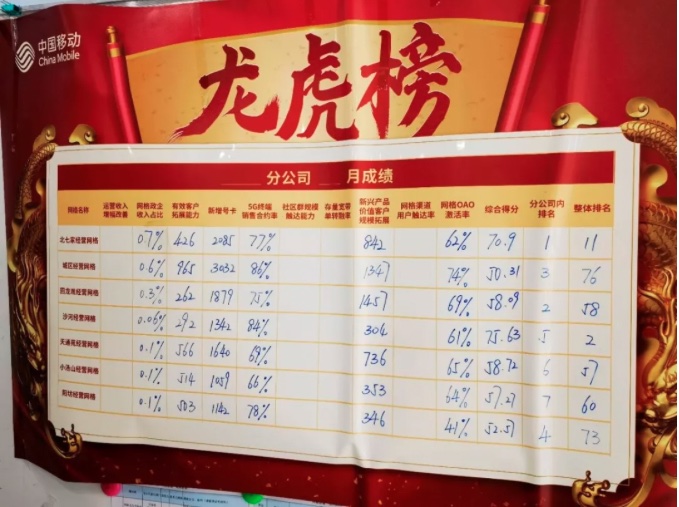 中国移动
China Mobile
龙虎榜
分公司 月成绩
网格名称 运营收入增幅改善 网格政企收入占比 有效客户拓展能力 新增号卡 5G终端销售合约率 社区群规模触达能力 存量宽带单转融率 新兴产品价值客户规模拓展 网格渠道用户触达率 网格OAO激活率 综合得分 分公司内排名 整体排名
北七家经营网格 0.7% 426 2085 77% 842 62% 70.9 1 11
城区经营网格 0.6% 965 3032 86% 1347 74% 50.31 3 76
回龙观经营网格 0.3% 262 1879 75% 1457 69% 58.09 2 58
沙河经营网格 0.06% 292 1342 84% 304 61% 75.63 5 2
天通苑经营网格 0.1% 566 1640 69% 736 65% 58.72 6 57
小汤山经营网格 0.1% 514 1059 66% 353 64% 57.27 7 60
阳坊经营网格 0.1% 503 1142 78% 346 41% 52.57 4 73